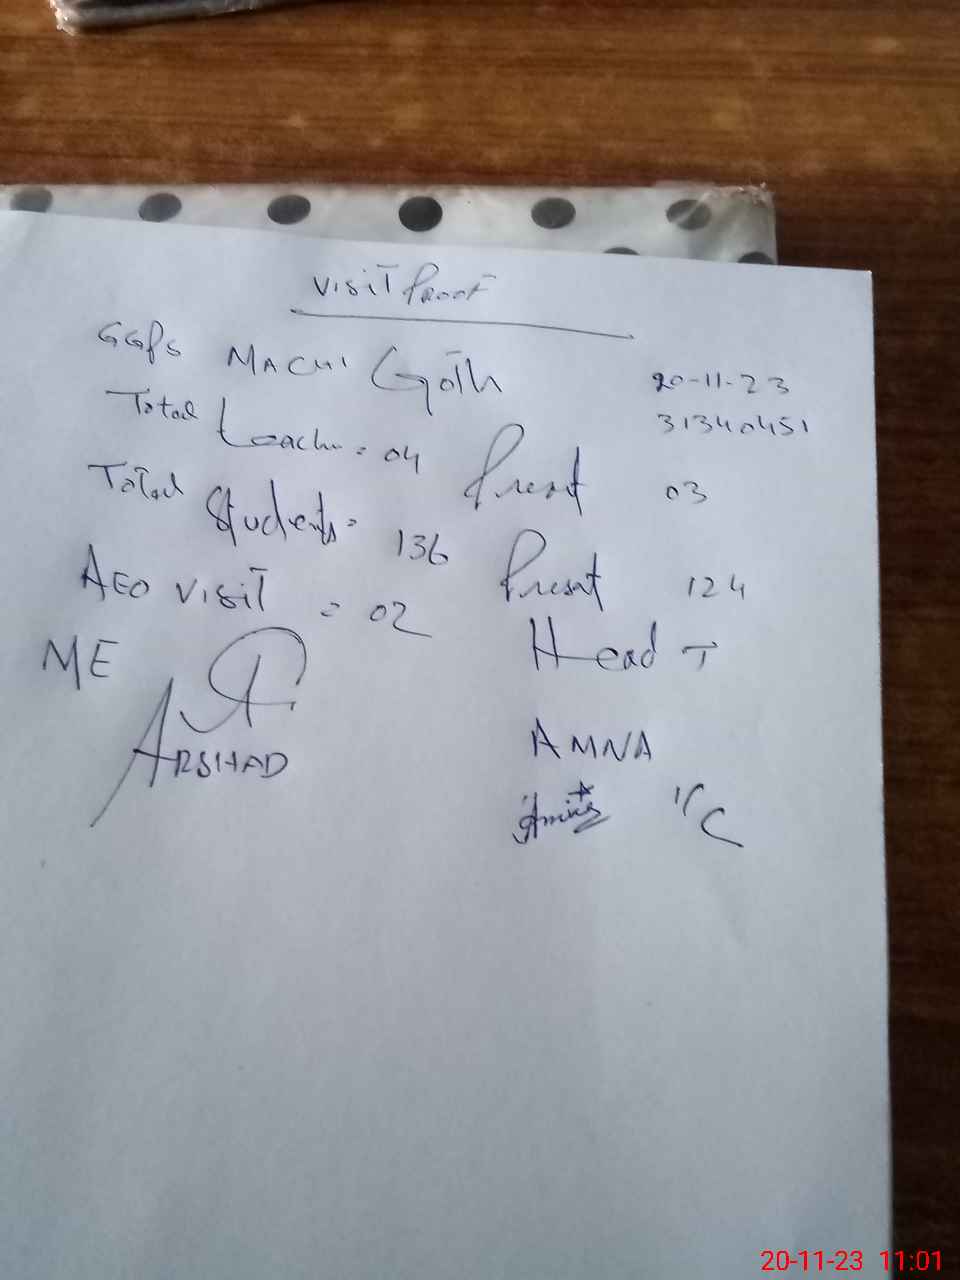 Visit Proof
GGPS MACHI Goth 20-11-23
31340451
Total teacher = 04 Present 03
Total Students = 136 Present 124
AEO Visit = 02
ME Head T
ARSHAD AMNA
I/C
20-11-23 11:01